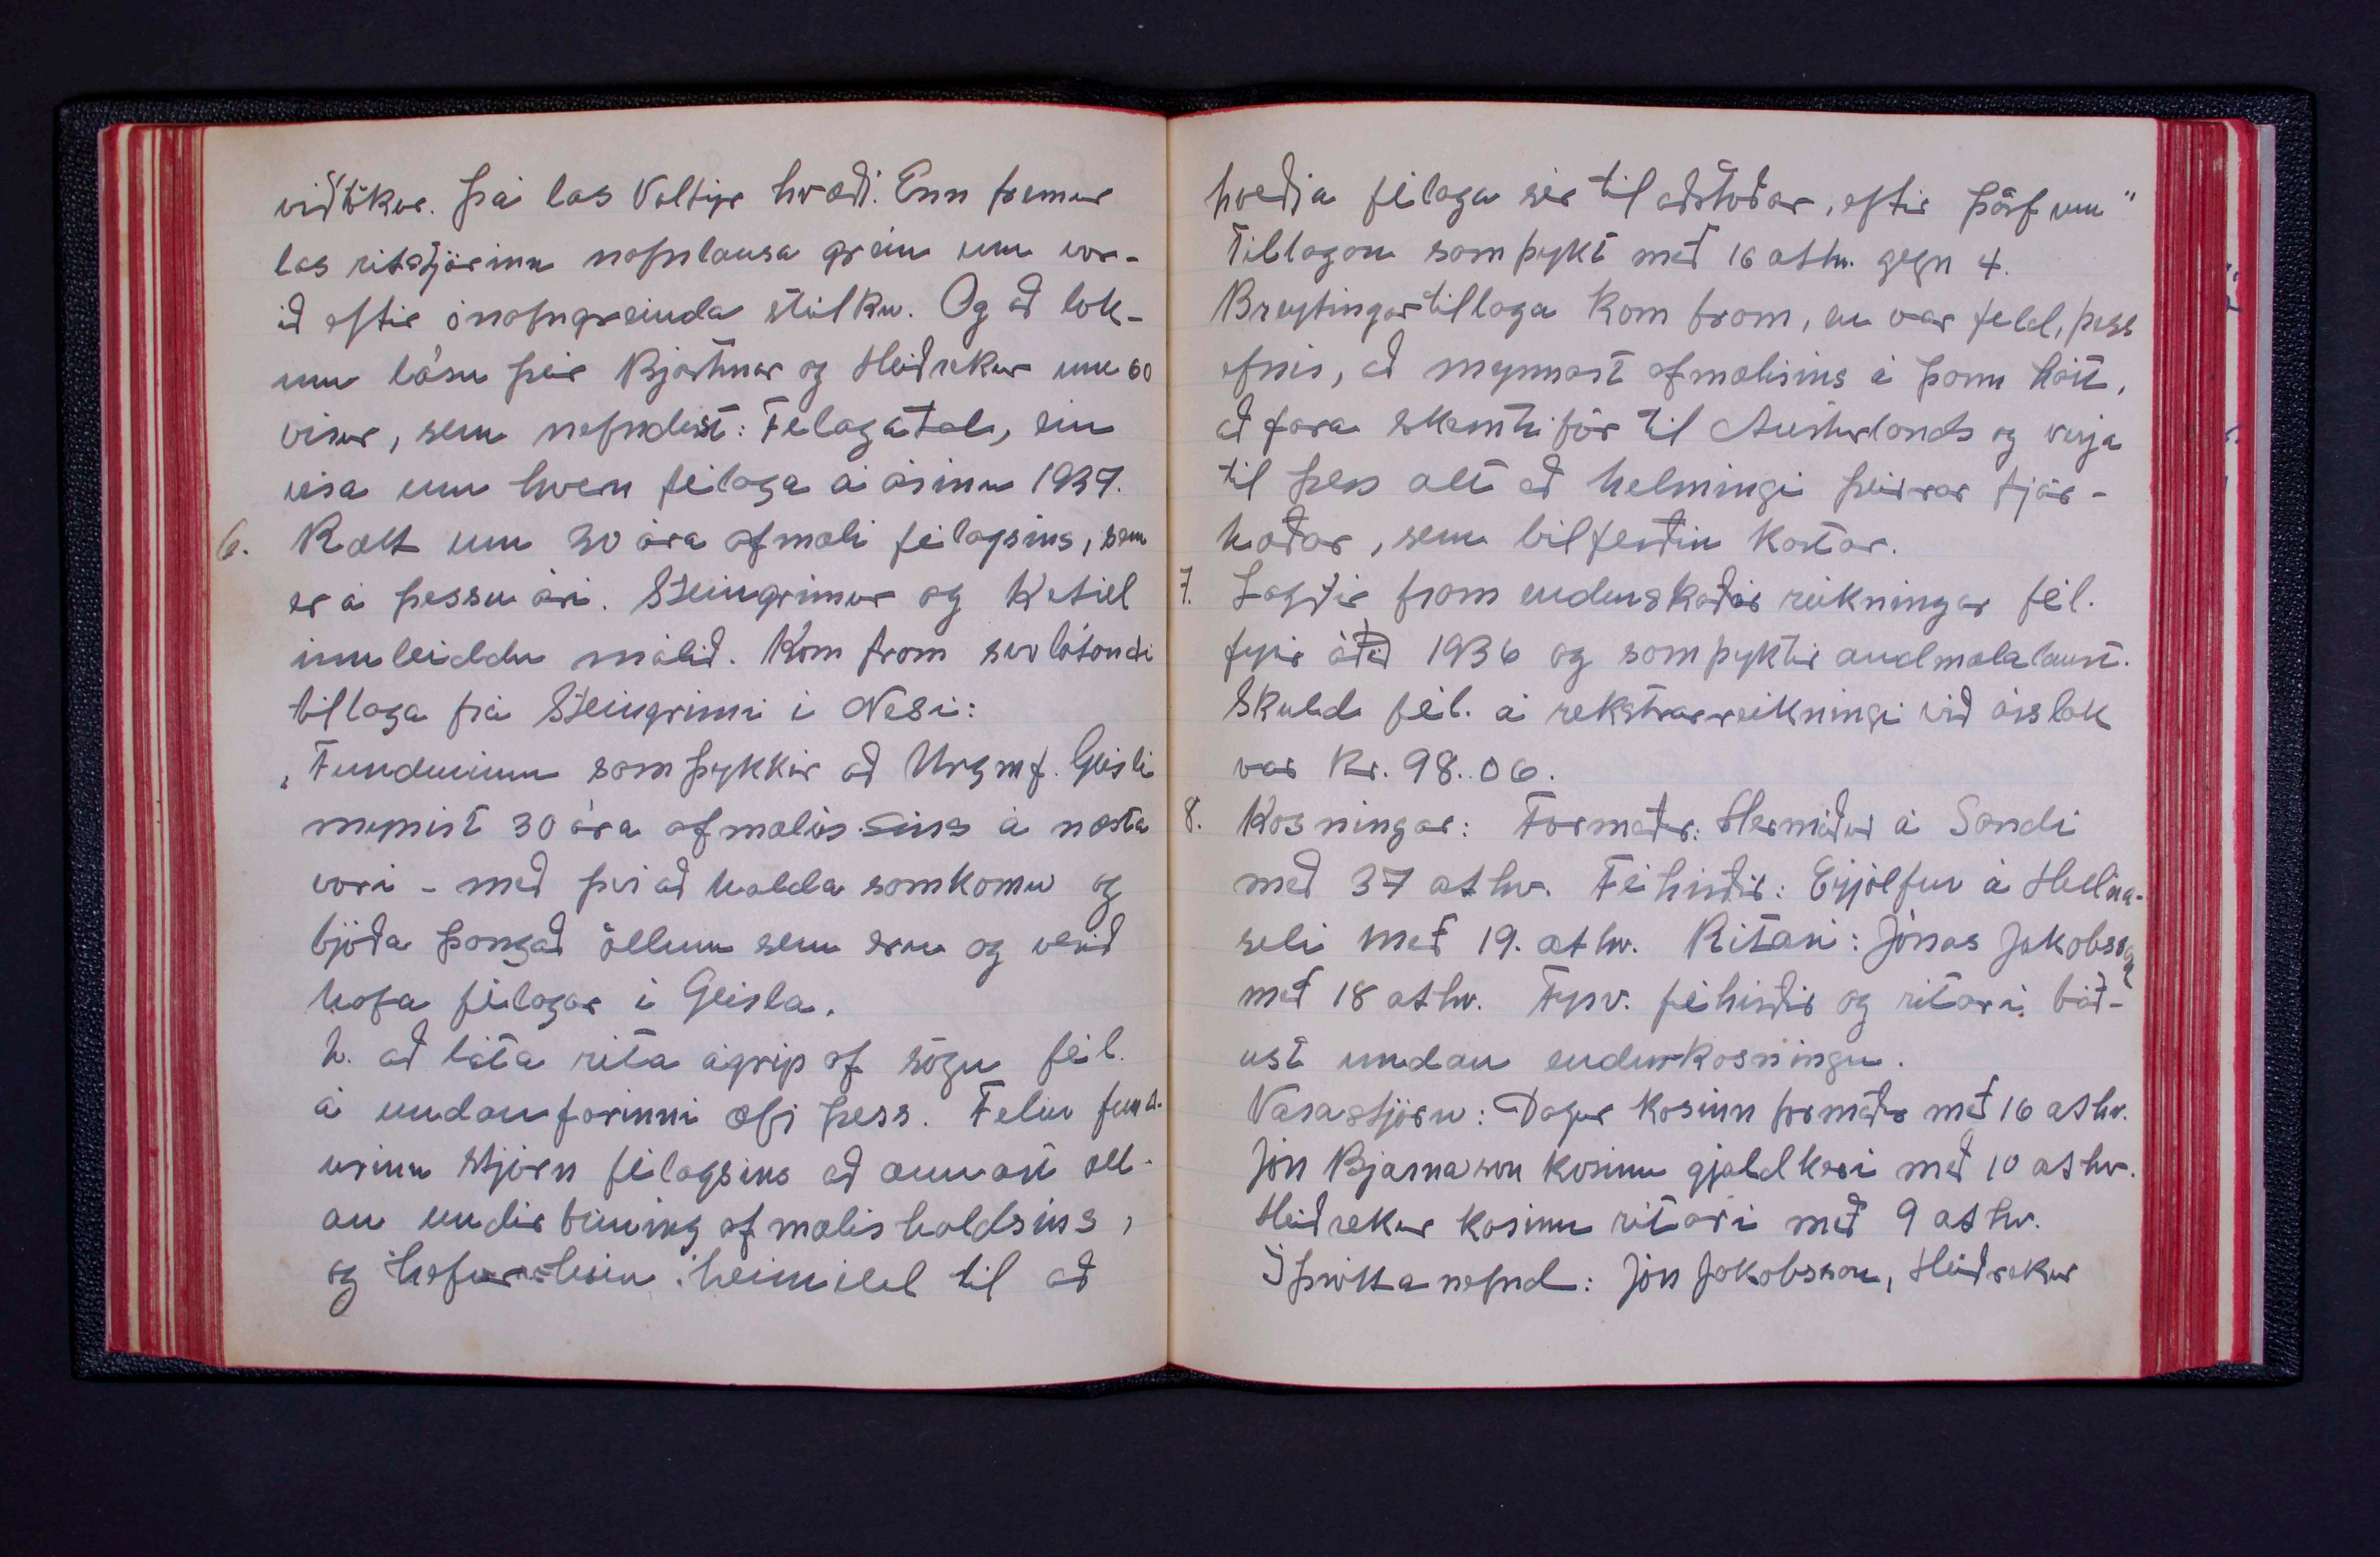 viðtökur. Þá las Valtýr kvæði. Enn fremur
las ritstjórinn nafnlausa grein um vor-
ið eftir ónafngreinda stúlku. Og að lok-
um lásu þeir Bjartmar og Heiðrekur um 60
vísur, sem nefndist: Félagatal, ein
vísa um hvern félaga á árinu 1937.
6. Rætt um 30 ára afmæli félagsins, sem
er á þessu ári. Steingrímur og Ketill
innleiddu málið. Kom fram svolátandi
tillaga frá Steingrími í Nesi:
„Fundurinn samþykkir að Ungmf. Geisli
minnist 30 ára afmælis síns á næsta
vori - með því að halda samkomu og
bjóða þangað öllum sem eru og verið
hafa félagar í Geisla.
2. að láta rita ágrip af sögu fél.
á undanfarinni æfi þess. Felur fund-
urinn stjórn félagsins að annast all-
an undirbúning afmælishaldsins,
og hefur hún heimild til að
kveðja félaga sér til aðstoðar, eftir þörfum"
Tillagan samþykt með 16 atkv. gegn 4.
Breytingartillaga kom fram, en var feld, þess
efnis, að mynnast afmælisins á þann hátt,
að fara skemtiför til Austurlands og verja
til þess alt að helmingi þeirrar fjár-
hæðar, sem bílferðin kostar.
7. Lagðir fram endurskoðaðir reikningar fél.
fyrir árið 1936 og samþyktir andmælalaust.
Skuld fél. á rekstrarreikningi við árslok
var Kr. 98.06.
8. Kosningar: Formaðr: Hermóður á Sandi
með 37 atkv. Féhirðir: Eyjólfur á Hellna-
seli með 19. atkv. Ritari: Jónas Jakobsson
með 18 atkv. Fyrv. féhirðir og ritari báð-
ust undan endurkosningu.
Varastjórn: Dagur kosinn formaðr með 16 atkv.
Jón Bjarnason kosinn gjaldkeri með 10 atkv.
Heiðrekur kosinn ritari með 9 atkv.
Íþróttanefnd: Jón Jakobsson, Heiðrekur